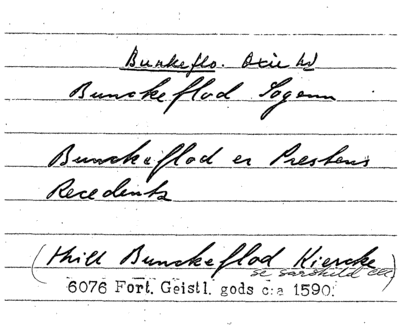 Bunkeflo. Oxie hd
Bunckeflod Sogenn
Bunckeflod er Prestens
Recedentz
(thill Bunckeflod Kiercke
se särskild )
6076 Fort. Geistl. gods c:a 1590.